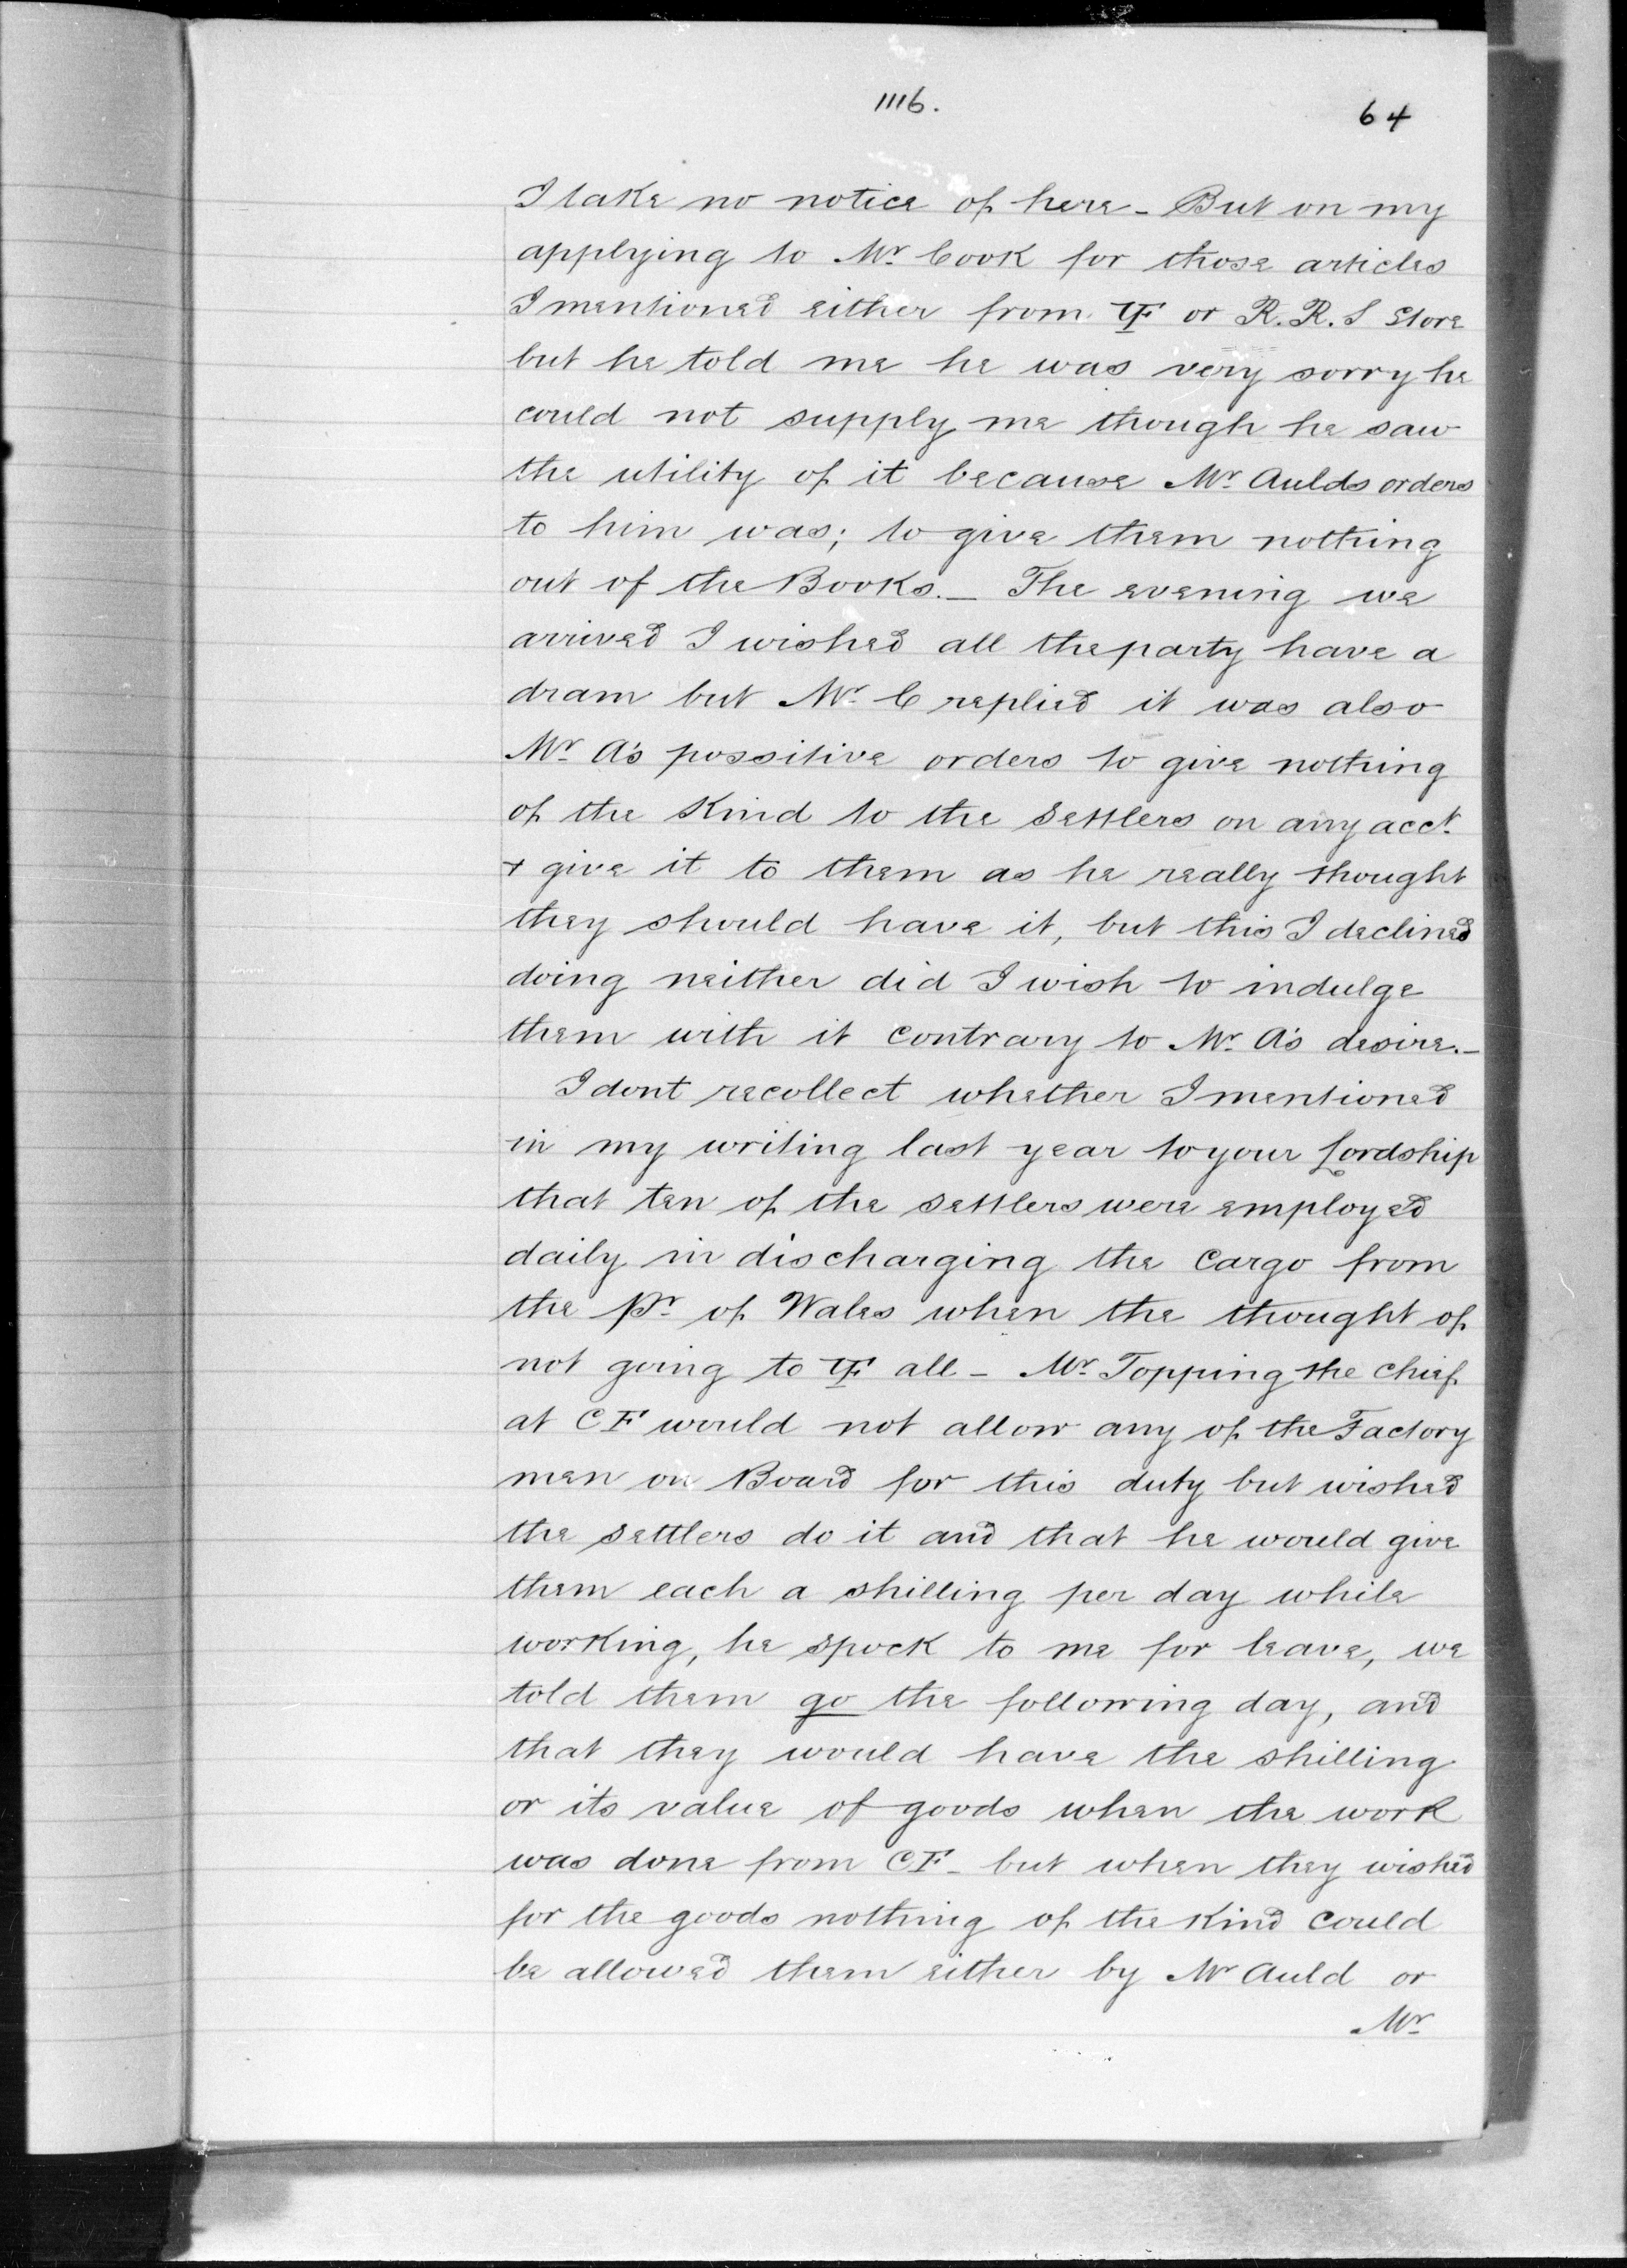 1116.
64
I take no notice of here - But on my
applying to Mr. Cook for those articles
I mentioned either from YF or R. R. S Store
but he told me he was very sorry he
could not supply me though he saw
the utility of it because Mr. Aulds orders
to him was; to give them nothing
out of the Books. — The evening we
arrived I wished all the party have a
dram but Mr. C replied it was also
Mr. A's possitive orders to give nothing
of the Kind to the settlers on any acct.
+ give it to them as he really thought
they should have it, but this I declined
doing neither did I wish to indulge
them with it contrary to Mr. A's desire. —
I dont recollect whether I mentioned
in my writing last year to your Lordship
that ten of the settlers were employed
daily in discharging the cargo from
the Pr. of Wales when the thought of
not going to YF all - Mr. Topping the chief
at CF would not allow any of the Factory
men on Board for this duty but wished
the settlers do it and that he would give
them each a shilling per day while
working, he spock to me for leave, we
told them go the following day, and
that they would have the shilling
or its value of goods when the work
was done from CF - but when they wished
for the goods nothing of the Kind could
be allowed them either by Mr Auld or
Mr.